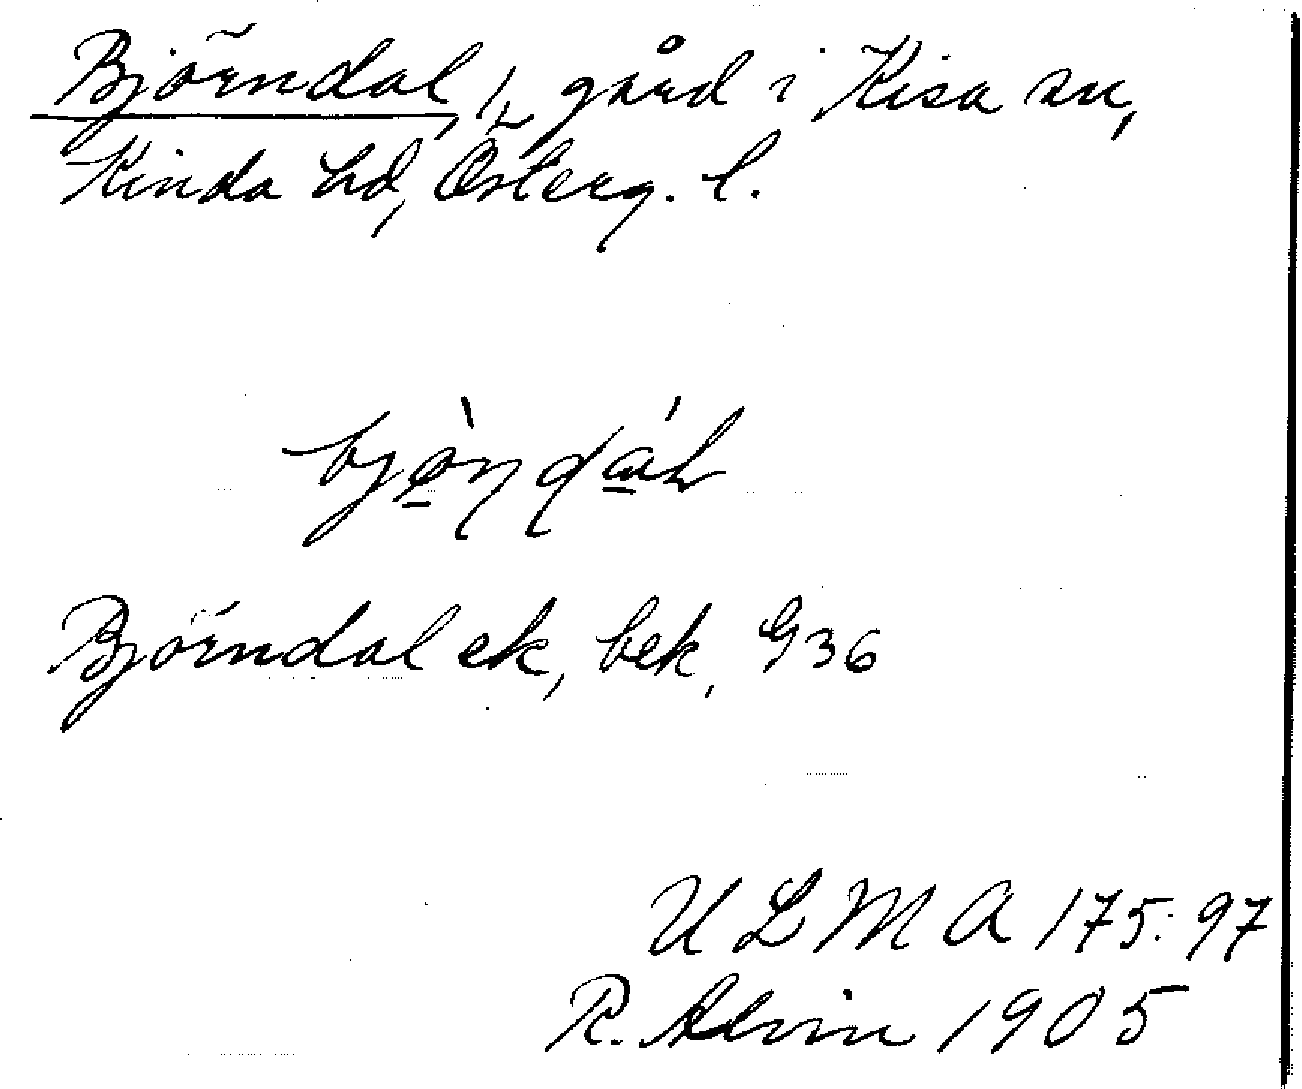 Björndal, 1/2 gård i Kisa sn,
Kinda hd, Österg. l.
Björndal ek, bek, G36
ULMA 175:97
R. Alvin 1905